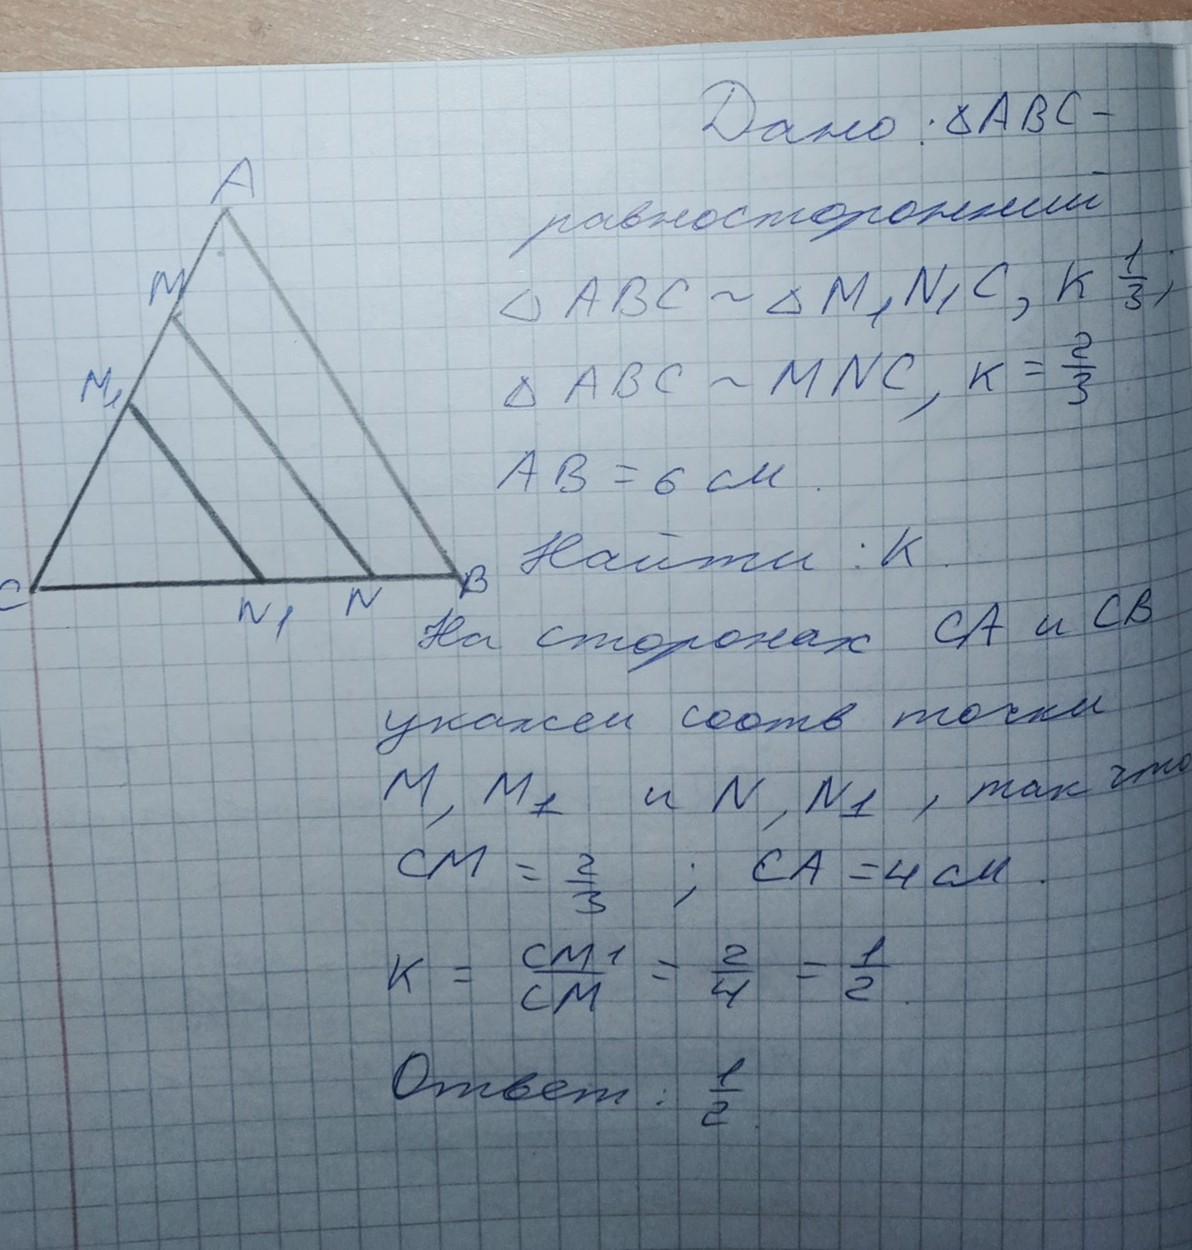 Дано: △ABC-
равносторонний
△ABC ~ △M₁N₁C, K 1/3;
△ABC ~ MNC, K = 2/3
AB = 6 см.
Найти: K.
A
M
M₁
C
N₁
N
B
На сторонах CA и CB
укажем соотв точки
M, M₁ и N, N₁, так что
CM = 2/3 ; CA = 4 см.
K = CM₁/CM = 2/4 = 1/2.
Ответ: 1/2.